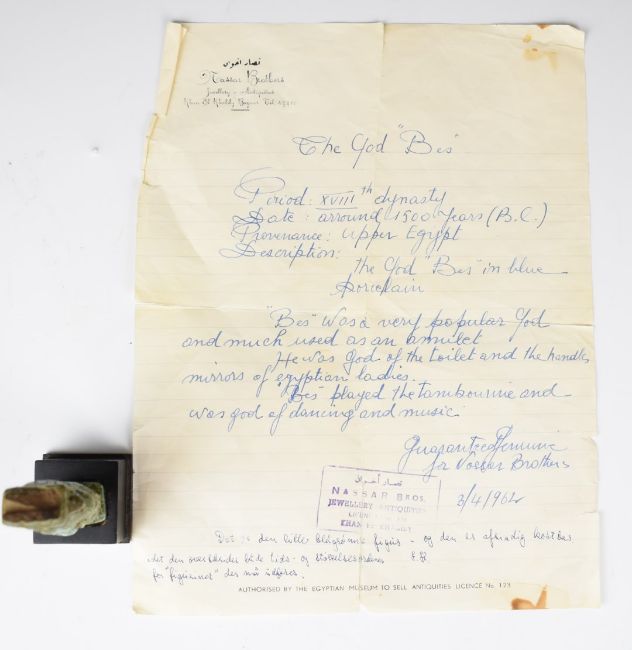 نصار اخوان
Nassar Brothers
Jewellery & Antiquities
Khan El Khalily Bazaar Tel.
The God "Bes"
Period: XVIIIth dynasty
Date: arround 1500 Years (B.C.)
Provenance: Upper Egypt
Description:
the God "Bes" in blue
porcelain
"Bes" was a very popular God
and much used as an amulet
He was God of the toilet and the handles
mirrors of egyptian ladies.
"Bes" played the tambourine and
was god of dancing and music.
Guaranteed Genuine
for Nassar Brothers
3/4/1962
نصار أخوان
NASSAR BROS.
JEWELLERY ANTIQUITIES
KHAN EL KHALILY
Det er den lille blågrønne figur - og den er afsindig kostbar
det den overlander både tids- og
for "figurinet" der må
AUTHORISED BY THE EGYPTIAN MUSEUM TO SELL ANTIQUITIES LICENCE No 123